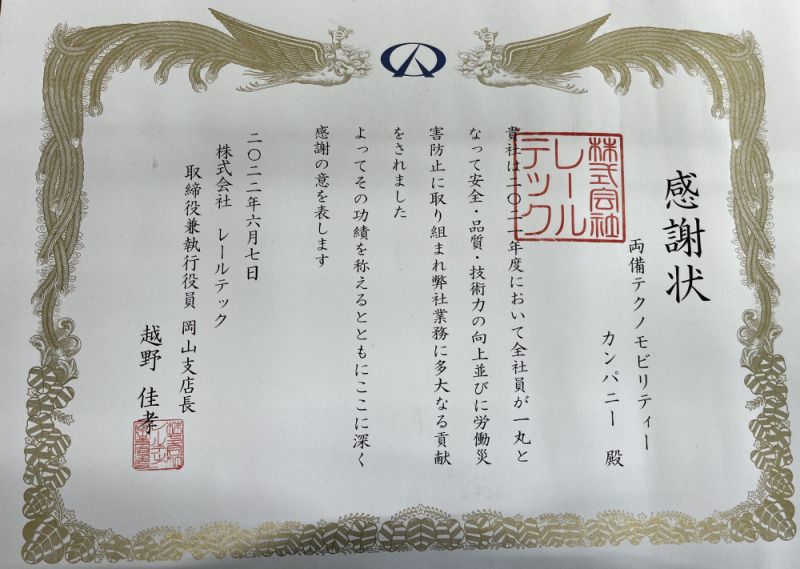 感謝状
両備テクノモビリティー
カンパニー 殿
株式会社
レール
テック
貴社は二〇二一年度において全社員が一丸と
なって安全・品質・技術力の向上並びに労働災
害防止に取り組まれ弊社業務に多大なる貢献
をされました
よってその功績を称えるとともにここに深く
感謝の意を表します
二〇二二年六月七日
株式会社 レールテック
取締役兼執行役員 岡山支店長
越野 佳孝